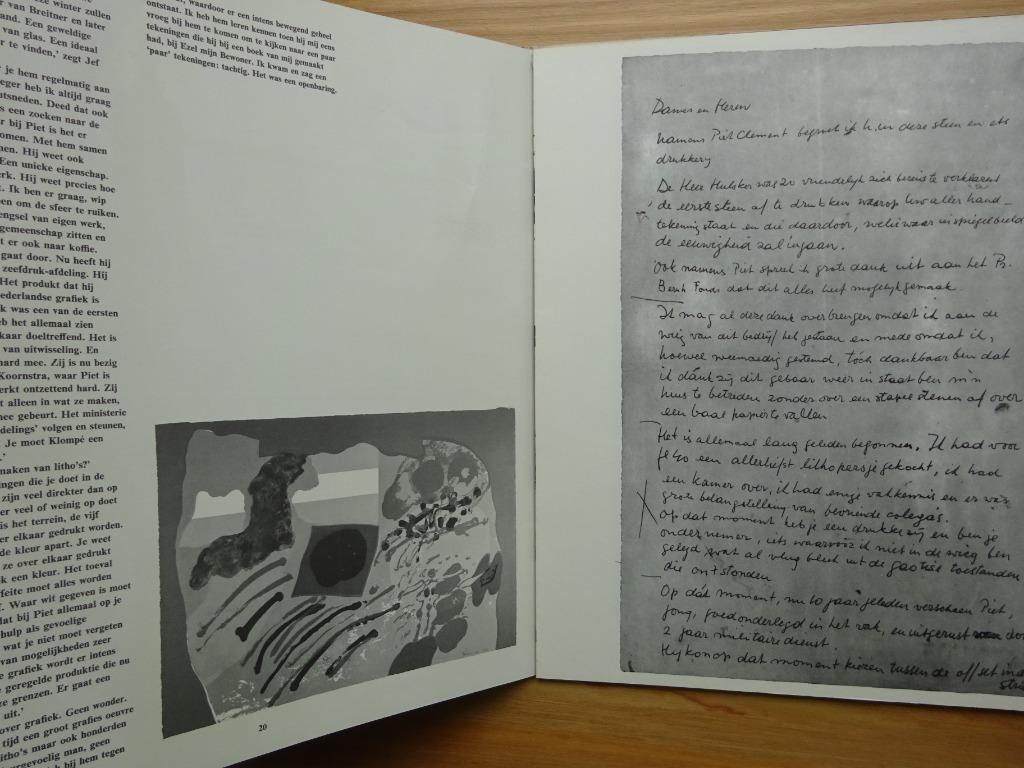 ze winter zullen
van Breitner en later
and. Een geweldige
van glas. Een ideaal
r te vinden,' zegt Jef
je hem regelmatig aan
eger heb ik altijd graag
utsneden. Deed dat ook
s een zoeken naar de
r bij Piet is het er
omen. Met hem samen
nen. Hij weet ook
Een unieke eigenschap.
erk. Hij weet precies hoe
t. Ik ben er graag, wip
en om de sfeer te ruiken.
engsel van eigen werk,
gemeenschap zitten en
t er ook naar koffie.
gaat door. Nu heeft hij
zeefdruk-afdeling. Hij
Het produkt dat hij
ederlandse grafiek is
k was een van de eersten
eb het allemaal zien
kaar doeltreffend. Het is
van uitwisseling. En
hard mee. Zij is nu bezig
Koornstra, waar Piet is
erkt ontzettend hard. Zij
t alleen in wat ze maken,
mee gebeurt. Het ministerie
delings' volgen en steunen,
Je moet Klompé een
maken van litho's?'
ingen die je doet in de
zijn veel direkter dan op
er veel of weinig op doet
is het terrein, de vijf
er elkaar gedrukt worden.
de kleur apart. Je weet
ze over elkaar gedrukt
k een kleur. Het toeval
feite moet alles worden
Waar wit gegeven is moet
dat bij Piet allemaal op je
hulp als gevoelige
wat je niet moet vergeten
van mogelijkheden zeer
e grafiek wordt er intens
geregelde produktie die nu
ze grenzen. Er gaat een
uit.'
over grafiek. Geen wonder.
tijd een groot grafies oeuvre
litho's maar ook honderden
urgevoelig man, geen
bij hem tegen
waardoor er een intens bewegend geheel
ontstaat. Ik heb hem leren kennen toen hij mij eens
vroeg bij hem te komen om te kijken naar een paar
tekeningen die hij bij een boek van mij gemaakt
had, bij Ezel mijn Bewoner. Ik kwam en zag een
'paar' tekeningen: tachtig. Het was een openbaring.
20
Dames en Heren
Namens Piet Clement begroet ik u in deze steen en ets
drukkery
De Heer Hulsker was zo vriendelijk zich bereid te verklaren
de eerste steen af te drukken waarop uw aller hand-
tekening staat en die daardoor, weliswaar in spiegelbeeld
de eeuwigheid zal ingaan.
Ook namens Piet spreek ik grote dank uit aan het Pr.
Bernh Fonds dat dit alles heeft mogelijk gemaakt.
Ik mag al deze dank overbrengen omdat ik aan de
wieg van dit bedrijf heb gestaan en mede omdat ik,
hoewel weemoedig gestemd, toch dankbaar ben dat
ik dank zij dit gebaar weer in staat ben m'n
huis te betreden zonder over een stapel stenen of over
een baal papier te vallen
Het is allemaal lang geleden begonnen. Ik had voor
f 40 een allerliefst lithopersje gekocht, ik had
een kamer over, ik had enige vakkennis en er was
grote belangstelling van bevriende colega's.
Op dat moment heb je een drukkerij en ben je
ondernemer, iets waarvoor ik niet in de wieg ben
gelegd wat al vlug bleek uit de gaotise toestanden
die ontstonden
Op dat moment, nu 10 jaar geleden verscheen Piet,
jong, goed onderlegd in het vak, en uitgerust door
2 jaar militaire dienst.
Hij kon op dat moment kiezen tussen de offset indu
strie